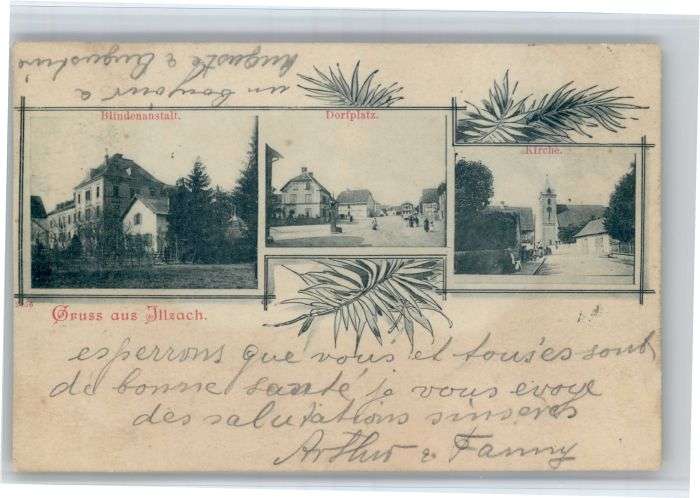 un bonjour a
Auguste & Augustine
Blindenanstalt.
Dorfplatz.
Kirche.
Gruss aus Illzach.
esperrons que vous et tous'es sont
de bonne santé je vous evoie
des salutations sinseres
Arthur & Fanny